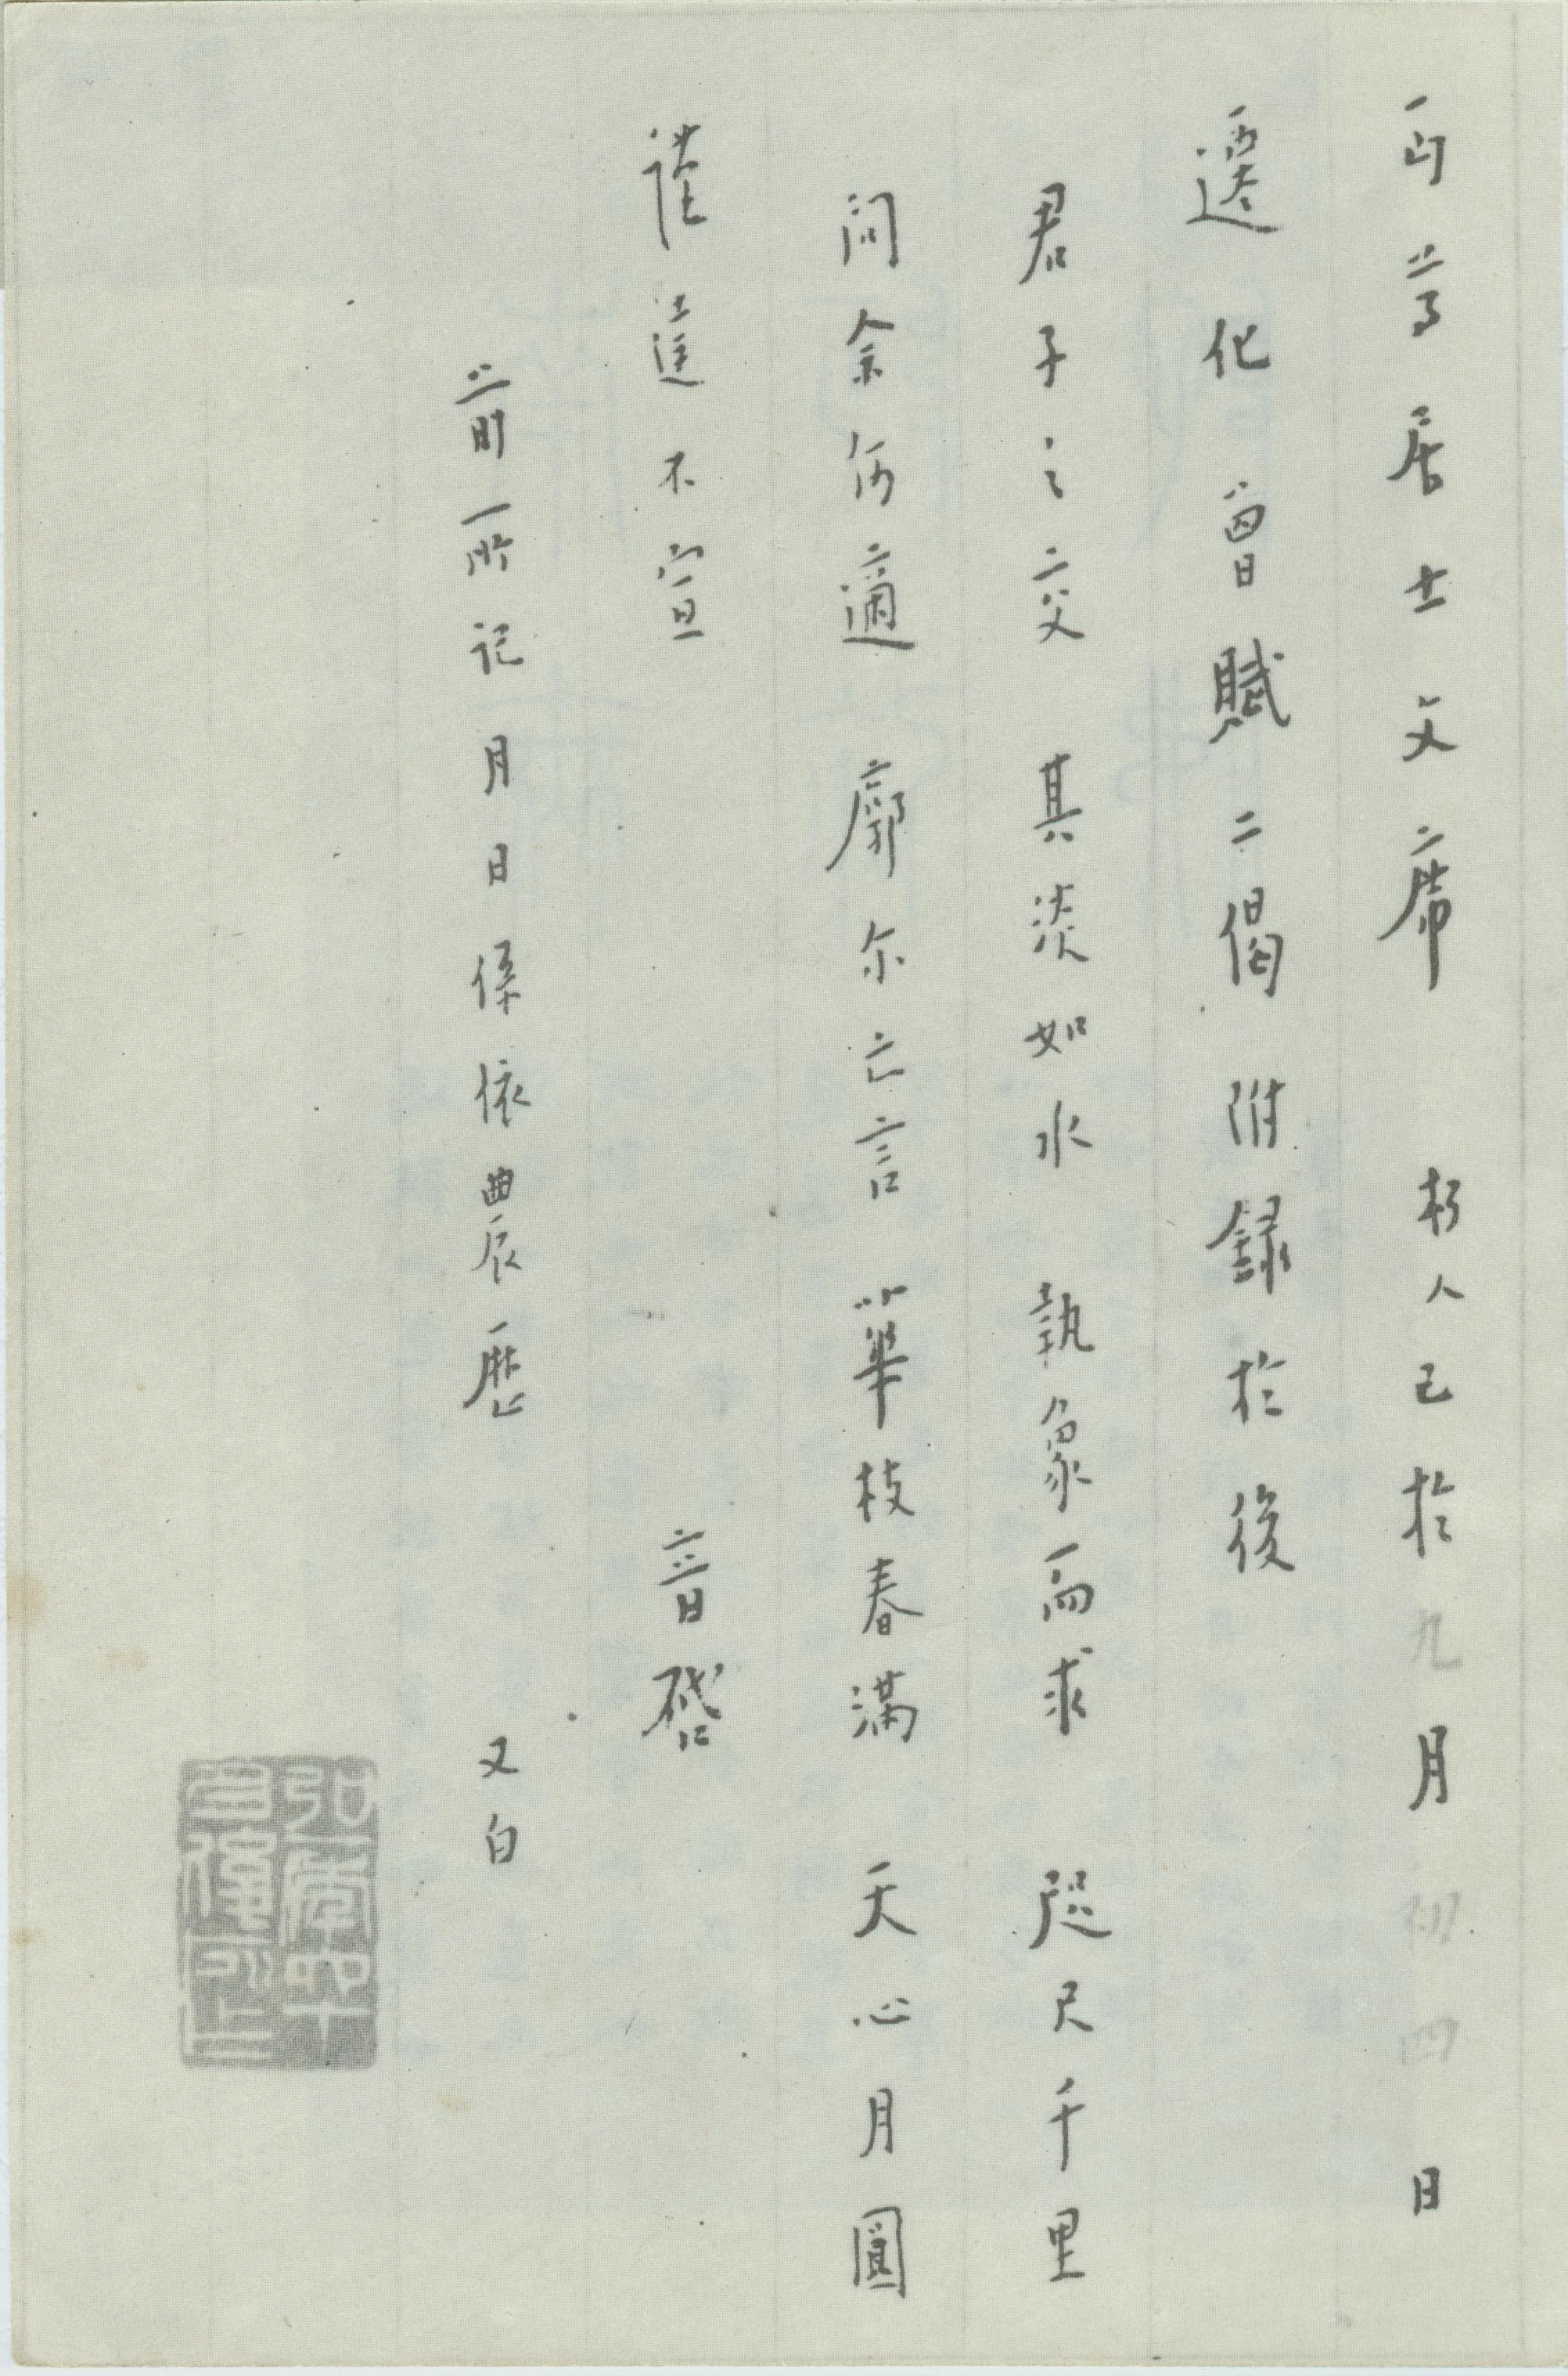 丏尊居士文席 朽人已於九月初四日
遷化曾賦二偈附錄於後
君子之交 其淡如水 執象而求 咫尺千里
問余何適 廓尔亡言 華枝春滿 天心月圓
謹達不宣 音啓
前所記月日係依農曆 又白
弘一年四十